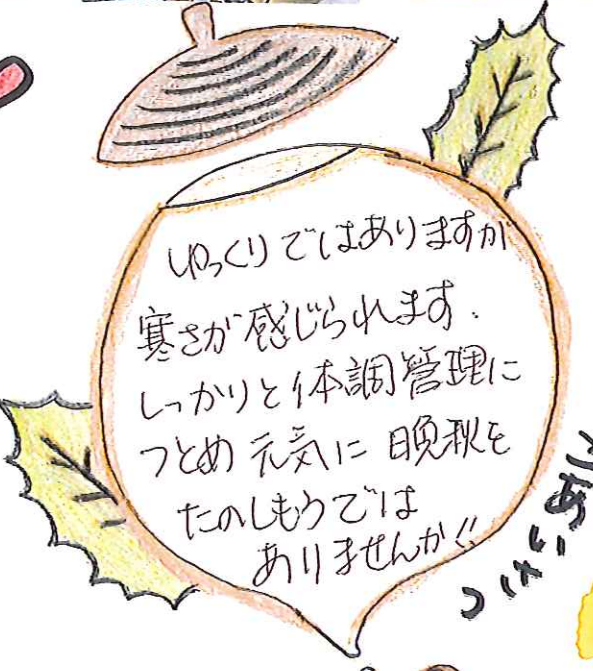 ゆっくりではありますが
寒さが感じられます.
しっかりと体調管理に
つとめ元気に晩秋を
たのしもうでは
ありませんか!!
ごあいさつ